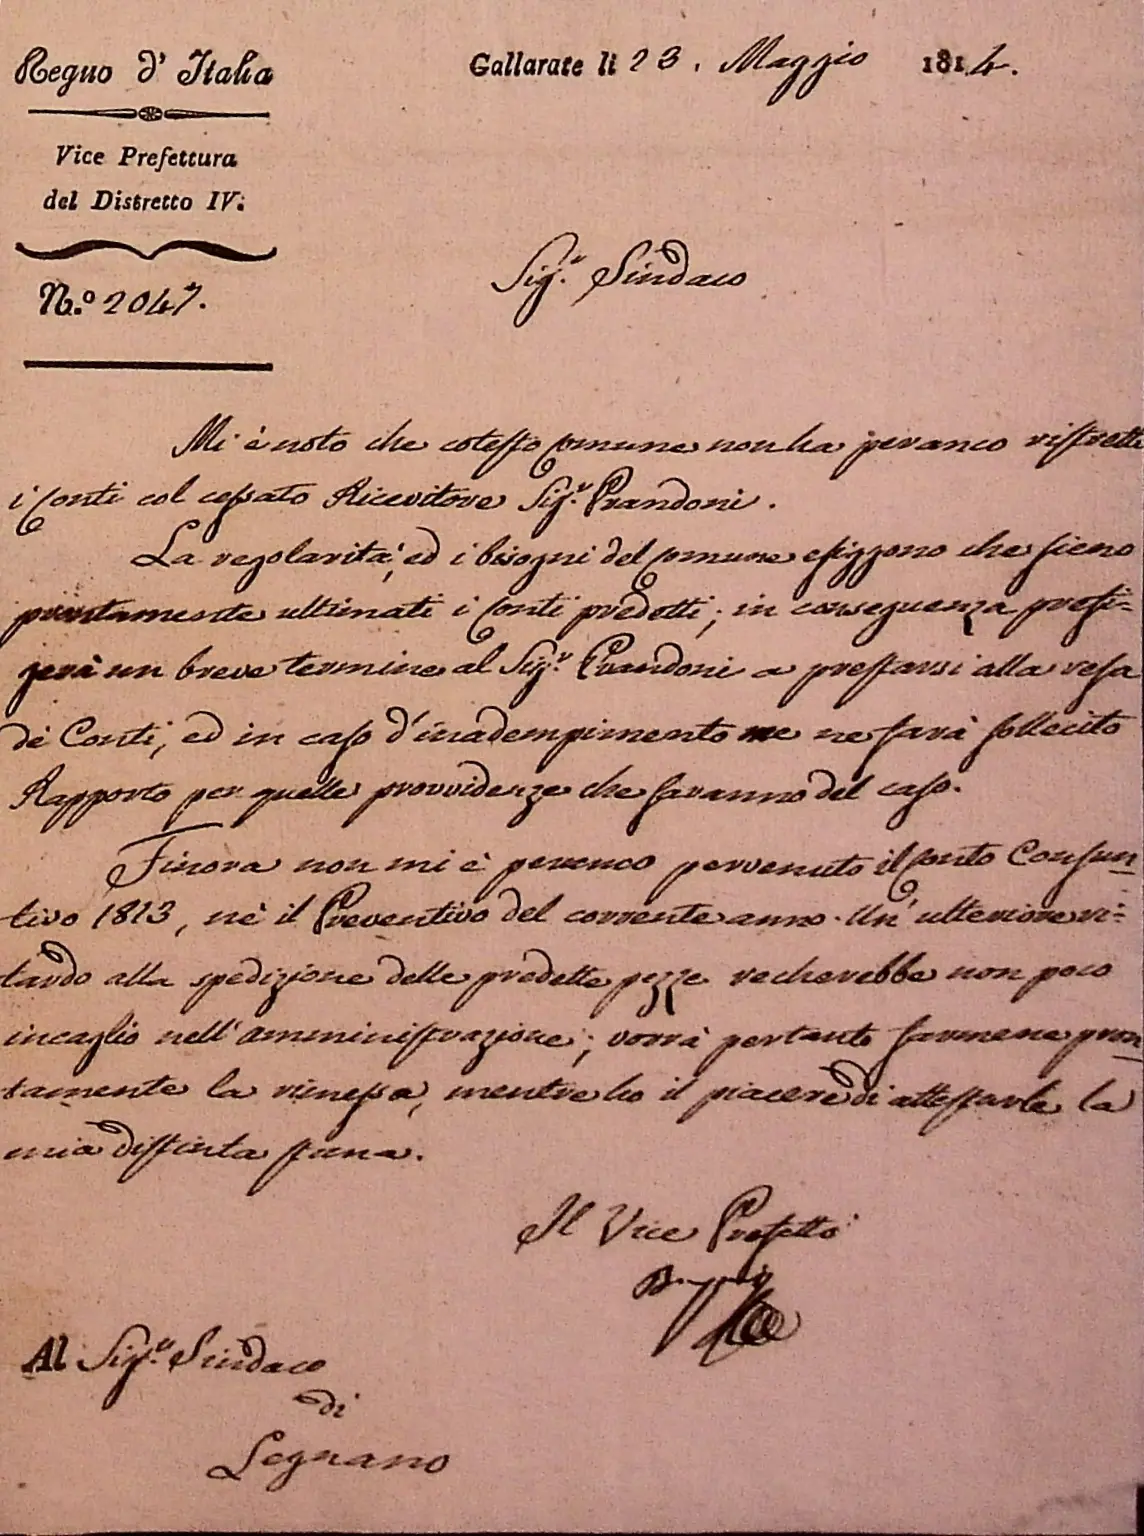 Regno d' Italia
Gallarate li 23. Maggio 1814.
Vice Prefettura
del Distretto IV.
N.º 2047.
Sig.r Sindaco
Mi è noto che cotesto Comune non ha peranco ristretti
i Conti col cessato Ricevitore Sig.r Prandoni.
La regolarità, ed i bisogni del Comune esiggono che sieno
prontamente ultimati i Conti predetti; in conseguenza prefi=
gerà un breve termine al Sig.r Prandoni a prestarsi alla resa
de Conti, ed in caso d'inadempimento me ne farà sollecito
Rapporto per quelle provvidenze che saranno del caso.
Finora non mi è peranco pervenuto il Conto Consun
tivo 1813, nè il Preventivo del corrente anno. Un' ulteriore ri=
tardo alla spedizione delle predette pezze recherebbe non poco
incaglio nell'amministrazione; vorrà pertanto farmene pron
tamente la rimessa, mentre ho il piacere di attestarle la
mia distinta stima.
Il Vice Prefetto
Al Sig.r Sindaco
di
Legnano